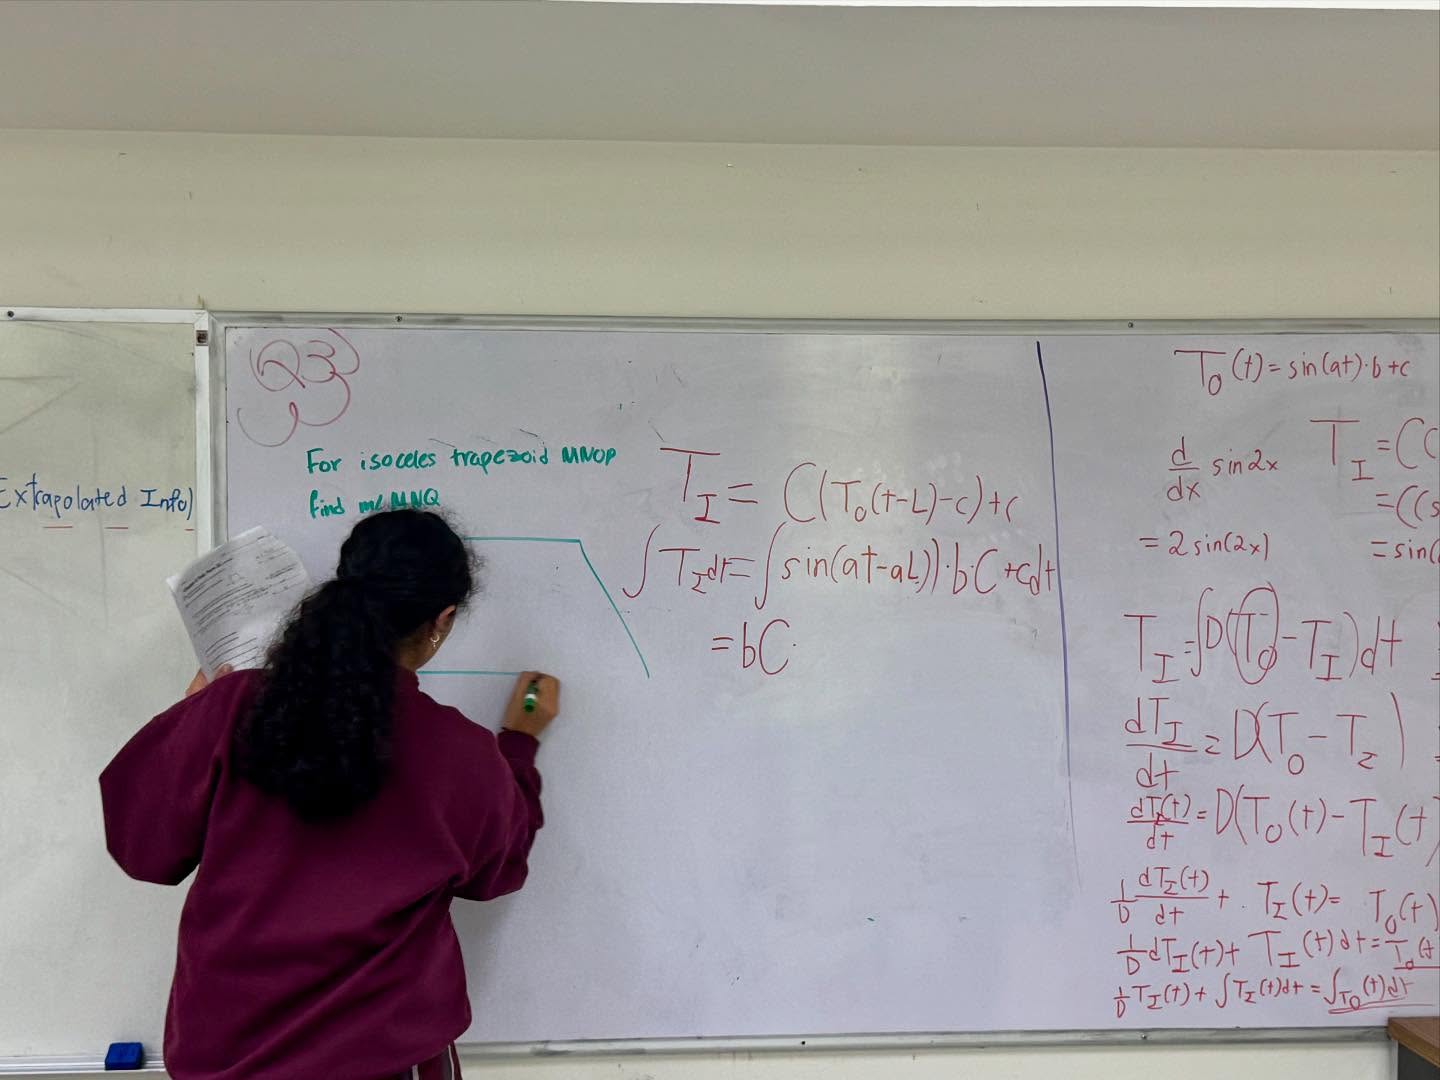 Extrapolated Info)
Q3
For isoceles trapezoid MNOP
find m∠MNQ
T_I = C(T_o(t-L)-c)+c
∫T_I dt = ∫sin(at-aL))·b·C+c dt
= bC·
T_o(t) = sin(at)·b+c
d/dx sin2x
= 2sin(2x)
T_I = C(
= C(s
= sin(
T_I = ∫D(T_o - T_I)dt
dT_I/dt = D(T_o - T_I)
dT_I(t)/dt = D(T_o(t) - T_I(t)
1/D dT_I(t)/dt + T_I(t) = T_o(t)
1/D dT_I(t) + T_I(t) dt = T_o(t
1/D T_I(t) + ∫T_I(t)dt = ∫T_o(t)dt